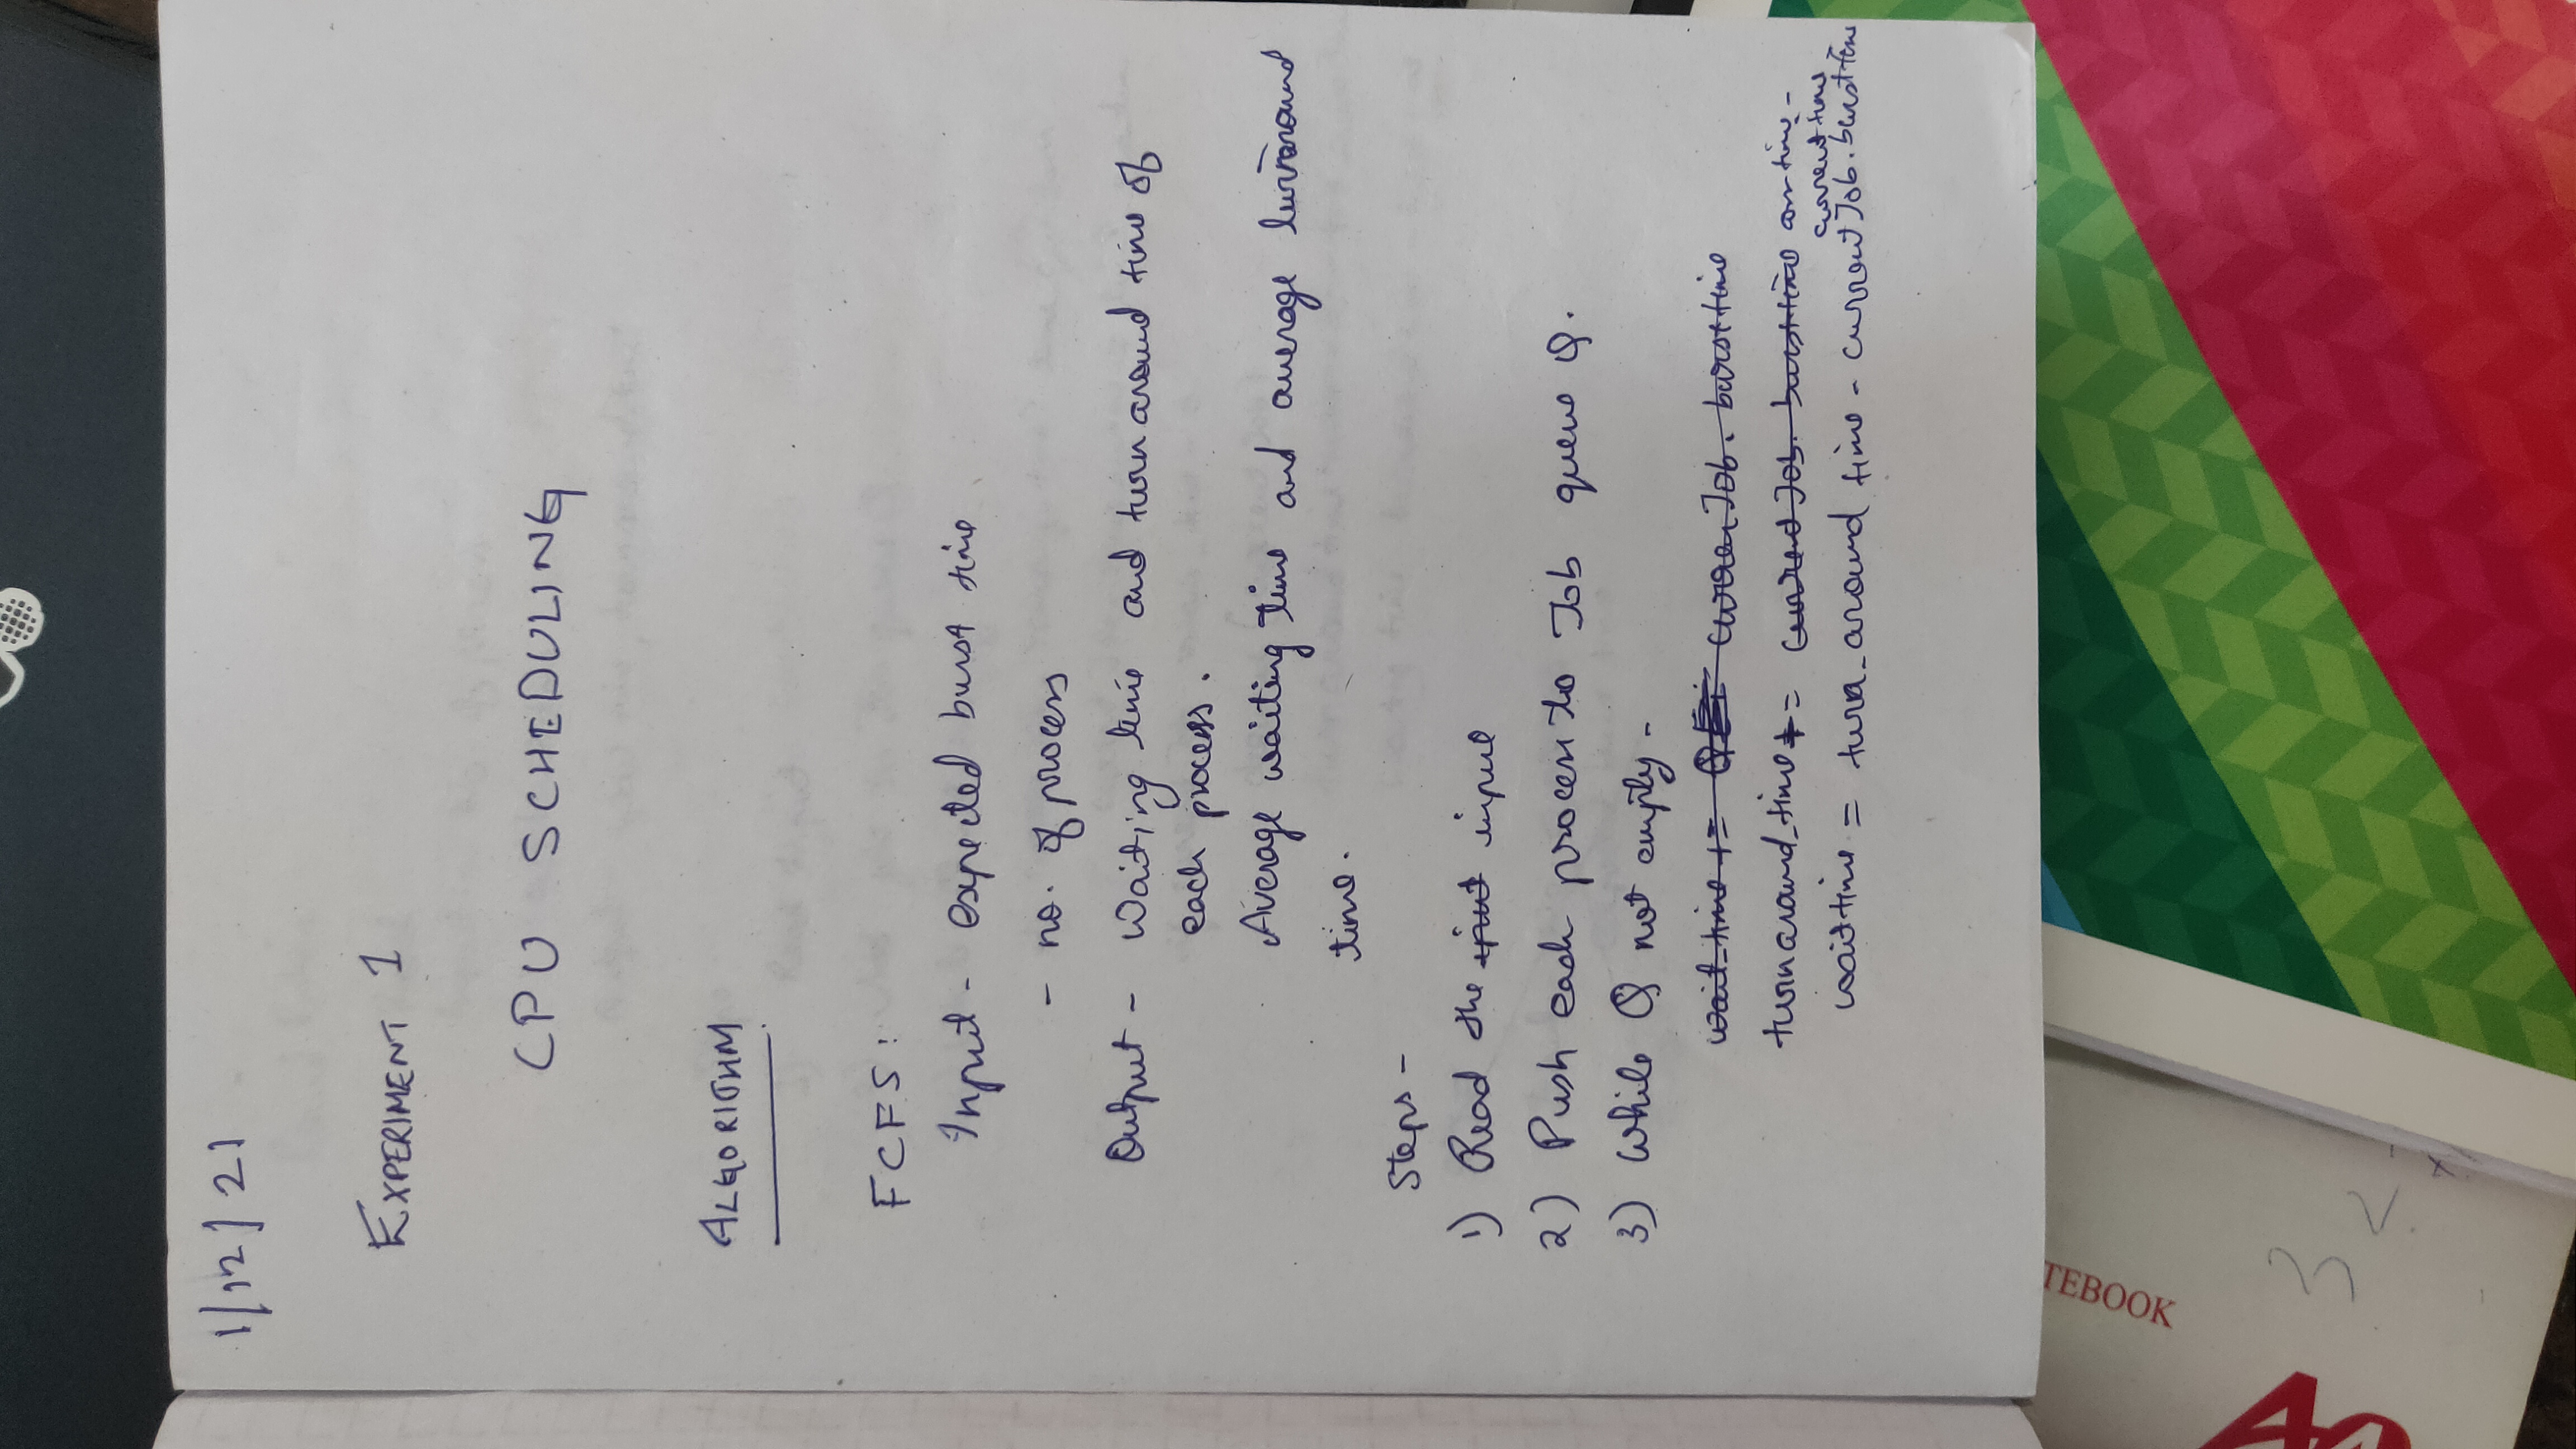 1/12/21
EXPERIMENT 1
CPU SCHEDULING
ALGORITHM
FCFS:
Input - expected burst time
- no. of process
Output - Waiting time and turn around time of
each process.
Average waiting time and average turnaround
time.
Steps -
1) Read the input input
2) Push each process to Job queue Q.
3) While Q not empty -
wait_time += Q currenJob. burst time
turn around_time += current Job. burst time time -
current time
wait time = turn_around time - current Job. burst time
TEBOOK
3 <